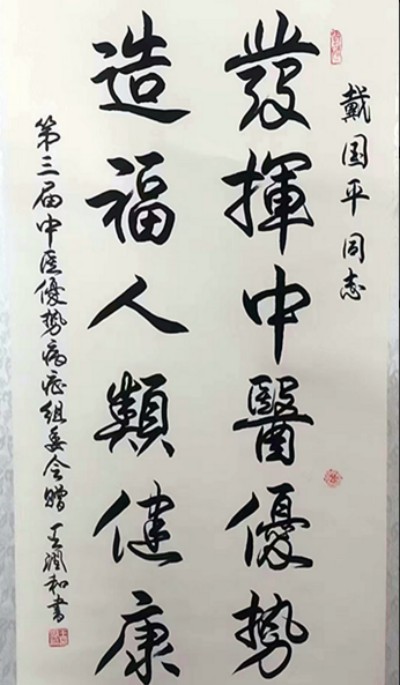 戴国平同志
發揮中醫優勢
造福人類健康
第三届中医優势病症组委会赠 王润和書